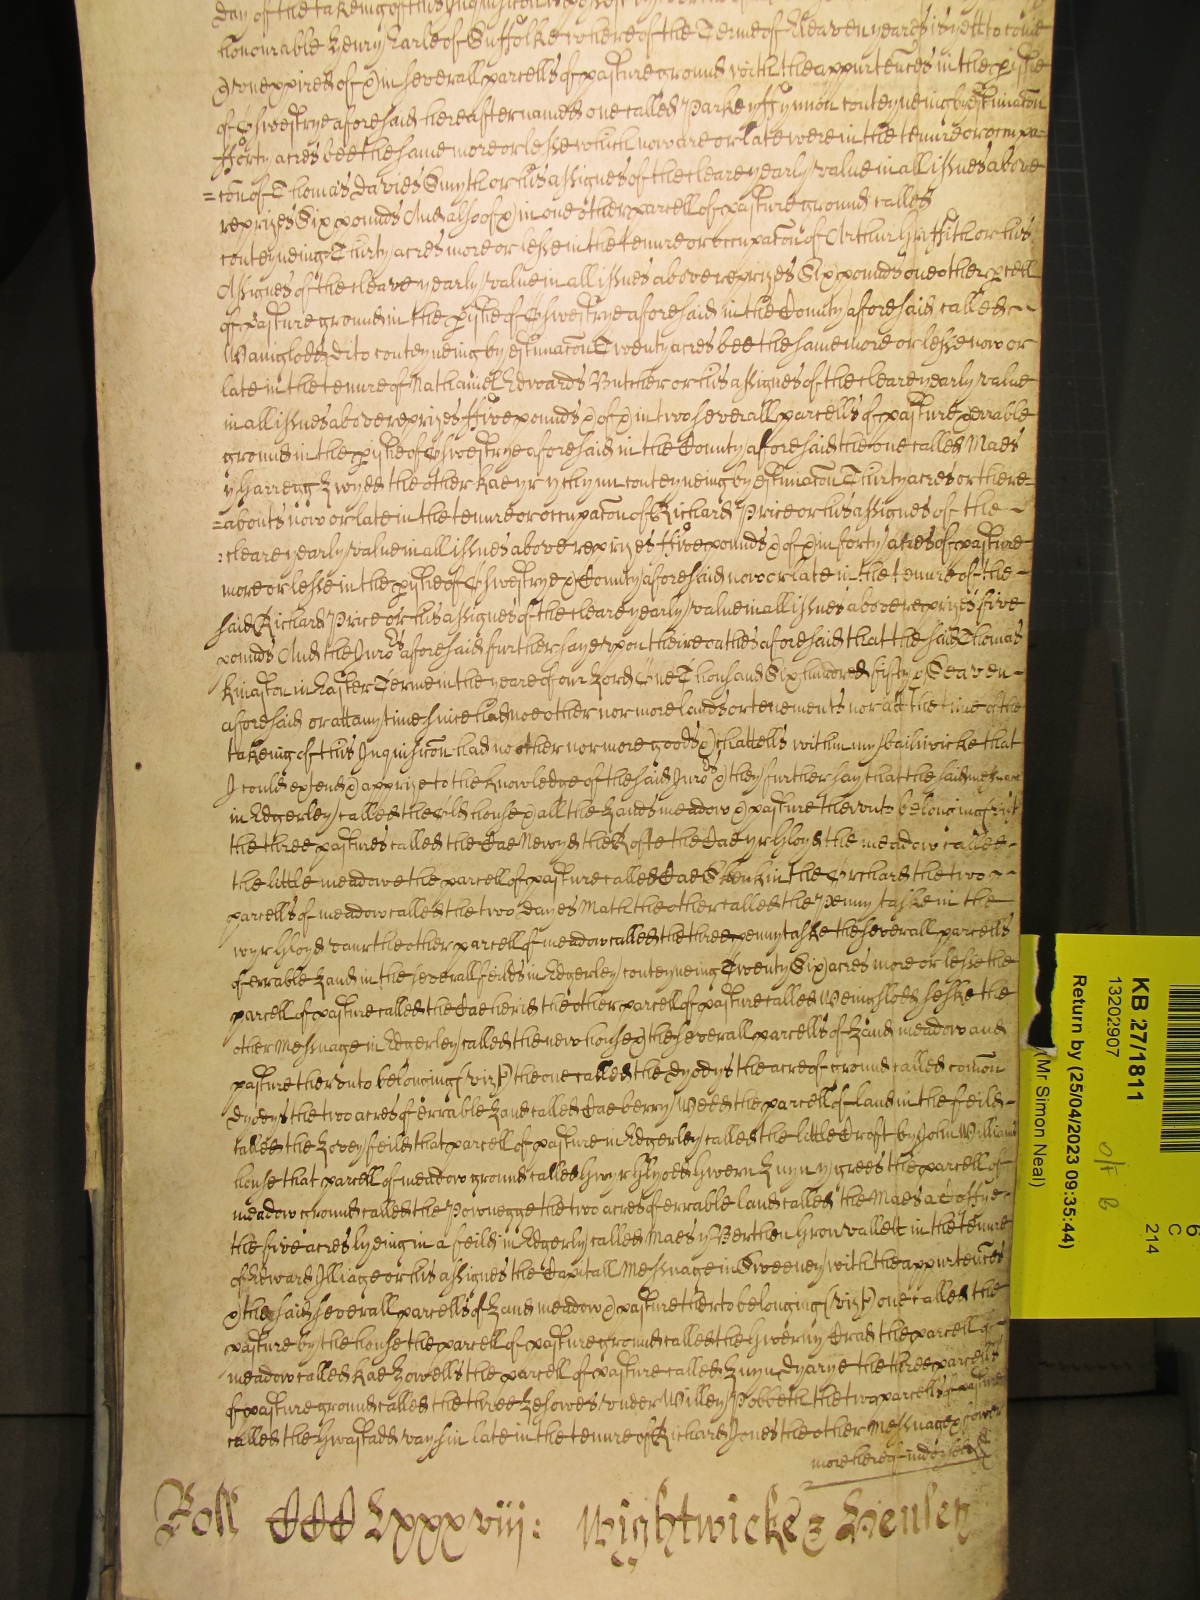 day of the takeing of this Inquisicon
honourable Henry Earle of Suffolke whereof the Terme of Eleaven yeares is yett to come
& unexpired of & in severall parcells of pasture ground with the appurtences in the pishe
of Oswestrye aforesaid hereafter named one called Parke y ffynnon conteyneing by estimacon
fforty acres bee the same more or lesse which now are or late were in the tenure or occupa=
=con of Thomas Davies Smyth or his assignes of the cleare yearly value in all issues above
reprizes Six pounds And also of & in one other parcell of pasture ground called
conteyneing Thirty acres more or lesse in the tenure or occupacon of Arthur Griffith or his
Assignes of the cleare yearly value in all issues above reprizes Six pounds one other pcell
of pasture ground in the pishe of Oswestrye aforesaid in the County aforesaid called
Wainglodd Dito conteyneing by estimacon Twenty acres bee the same more or lesse now or
late in the tenure of Nathaniel Edwards Butcher or his assignes of the cleare yearly value
in all issues above reprizes ffive pounds & of & in two severall parcells of pasture & errable
ground in the pishe of Oswestrye aforesaid in the County aforesaid the one called Maes
y Harregg Lwyd the other Kae yr ychynn conteyneing by estimacon Thirty acres or there=
=abouts now or late in the tenure or occupacon of Richard Price or his assignes of the
:cleare yearly value in all issues above reprizes ffive pounds & of & in forty acres of pasture
more or lesse in the pishe of Oswestrye & County aforesaid now or late in the tenure of the
said Richard Price or his assignes of the cleare yearly value in all issues above reprizes five
pounds And the Jurors aforesaid further say upon their oathes aforesaid that the said Thomas
Kinaston in Easter Terme in the yeare of our Lord One Thousand Six hundred fifty & Seaven
aforesaid or att any time since had noe other nor more lands or tenements nor att the time of the
takeing of this Inquisicon had no other nor more goods & chattells within my bailiwicke that
I could extend & apprize to the knowledge of the said Jurors & they further say that the said messuage
in Edgerley called the Old house & all the Lands meadow & pasture thereunto belonging vizt
the three pastures called the Cae Newyd the Rofte the Cae yr Lloyd the meadow called
the little meadowe the parcell of pasture called Cae Skenkin the Orchard the two
parcells of meadow called the two Dayes Math the other called the Penny taske in the
wyrhloyd vawr the other parcell of meadow called the three penny taske the severall parcells
of errable Land in the severall feilds in Edgerley conteyneing Twenty Six acres more or lesse the
parcell of pasture called the Cae heird the other parcell of pasture called Weinglodd Seske the
other Messuage in Edgerley called the new house & the severall parcells of Land meadow and
pasture thereunto belonging (vizt) the one called the Dyodys the acre of ground called comon
Dyodys the two acres of errable Land called Cae berry Wedd the parcell of land in the feild
called the Lovey feild that parcell of pasture in Edgerley called the little Croft by John Williams
house that parcell of meadow ground called Gwyrhlyodd Gwern Lnyn y grees the parcell of
meadow ground called the Powneigge the two acres of errable land called the Maes a Coffye
the five acres lyeing in a feild in Edgerly called Maes y Berthen Gron vallett in the tenure
of Edward Illiage or his assignes the Capitall Messuage in Sweeney with the appurtences
& the said severall parcells of Land meadow & pasture therto belonging (vizt) one called the
pasture by the house the parcell of pasture ground called the Gwerny Crad the parcell of
meadow called Kae Howells the parcell of pasture called Lnyn Dyarye the three parcells
of pasture ground called the three Lesowes under Willey Pobbeth the two parcells of pasture
called the Gwastadd vaughin late in the tenure of Richard Jones the other Messuage
more hereof indorsed
Roll CCC Lxxxviij: Wightwicke & Henley
KB 27/1811
13202907
Return by (25/04/2023 09:35:44)
(Mr Simon Neal)
O/S
B
6
C
214